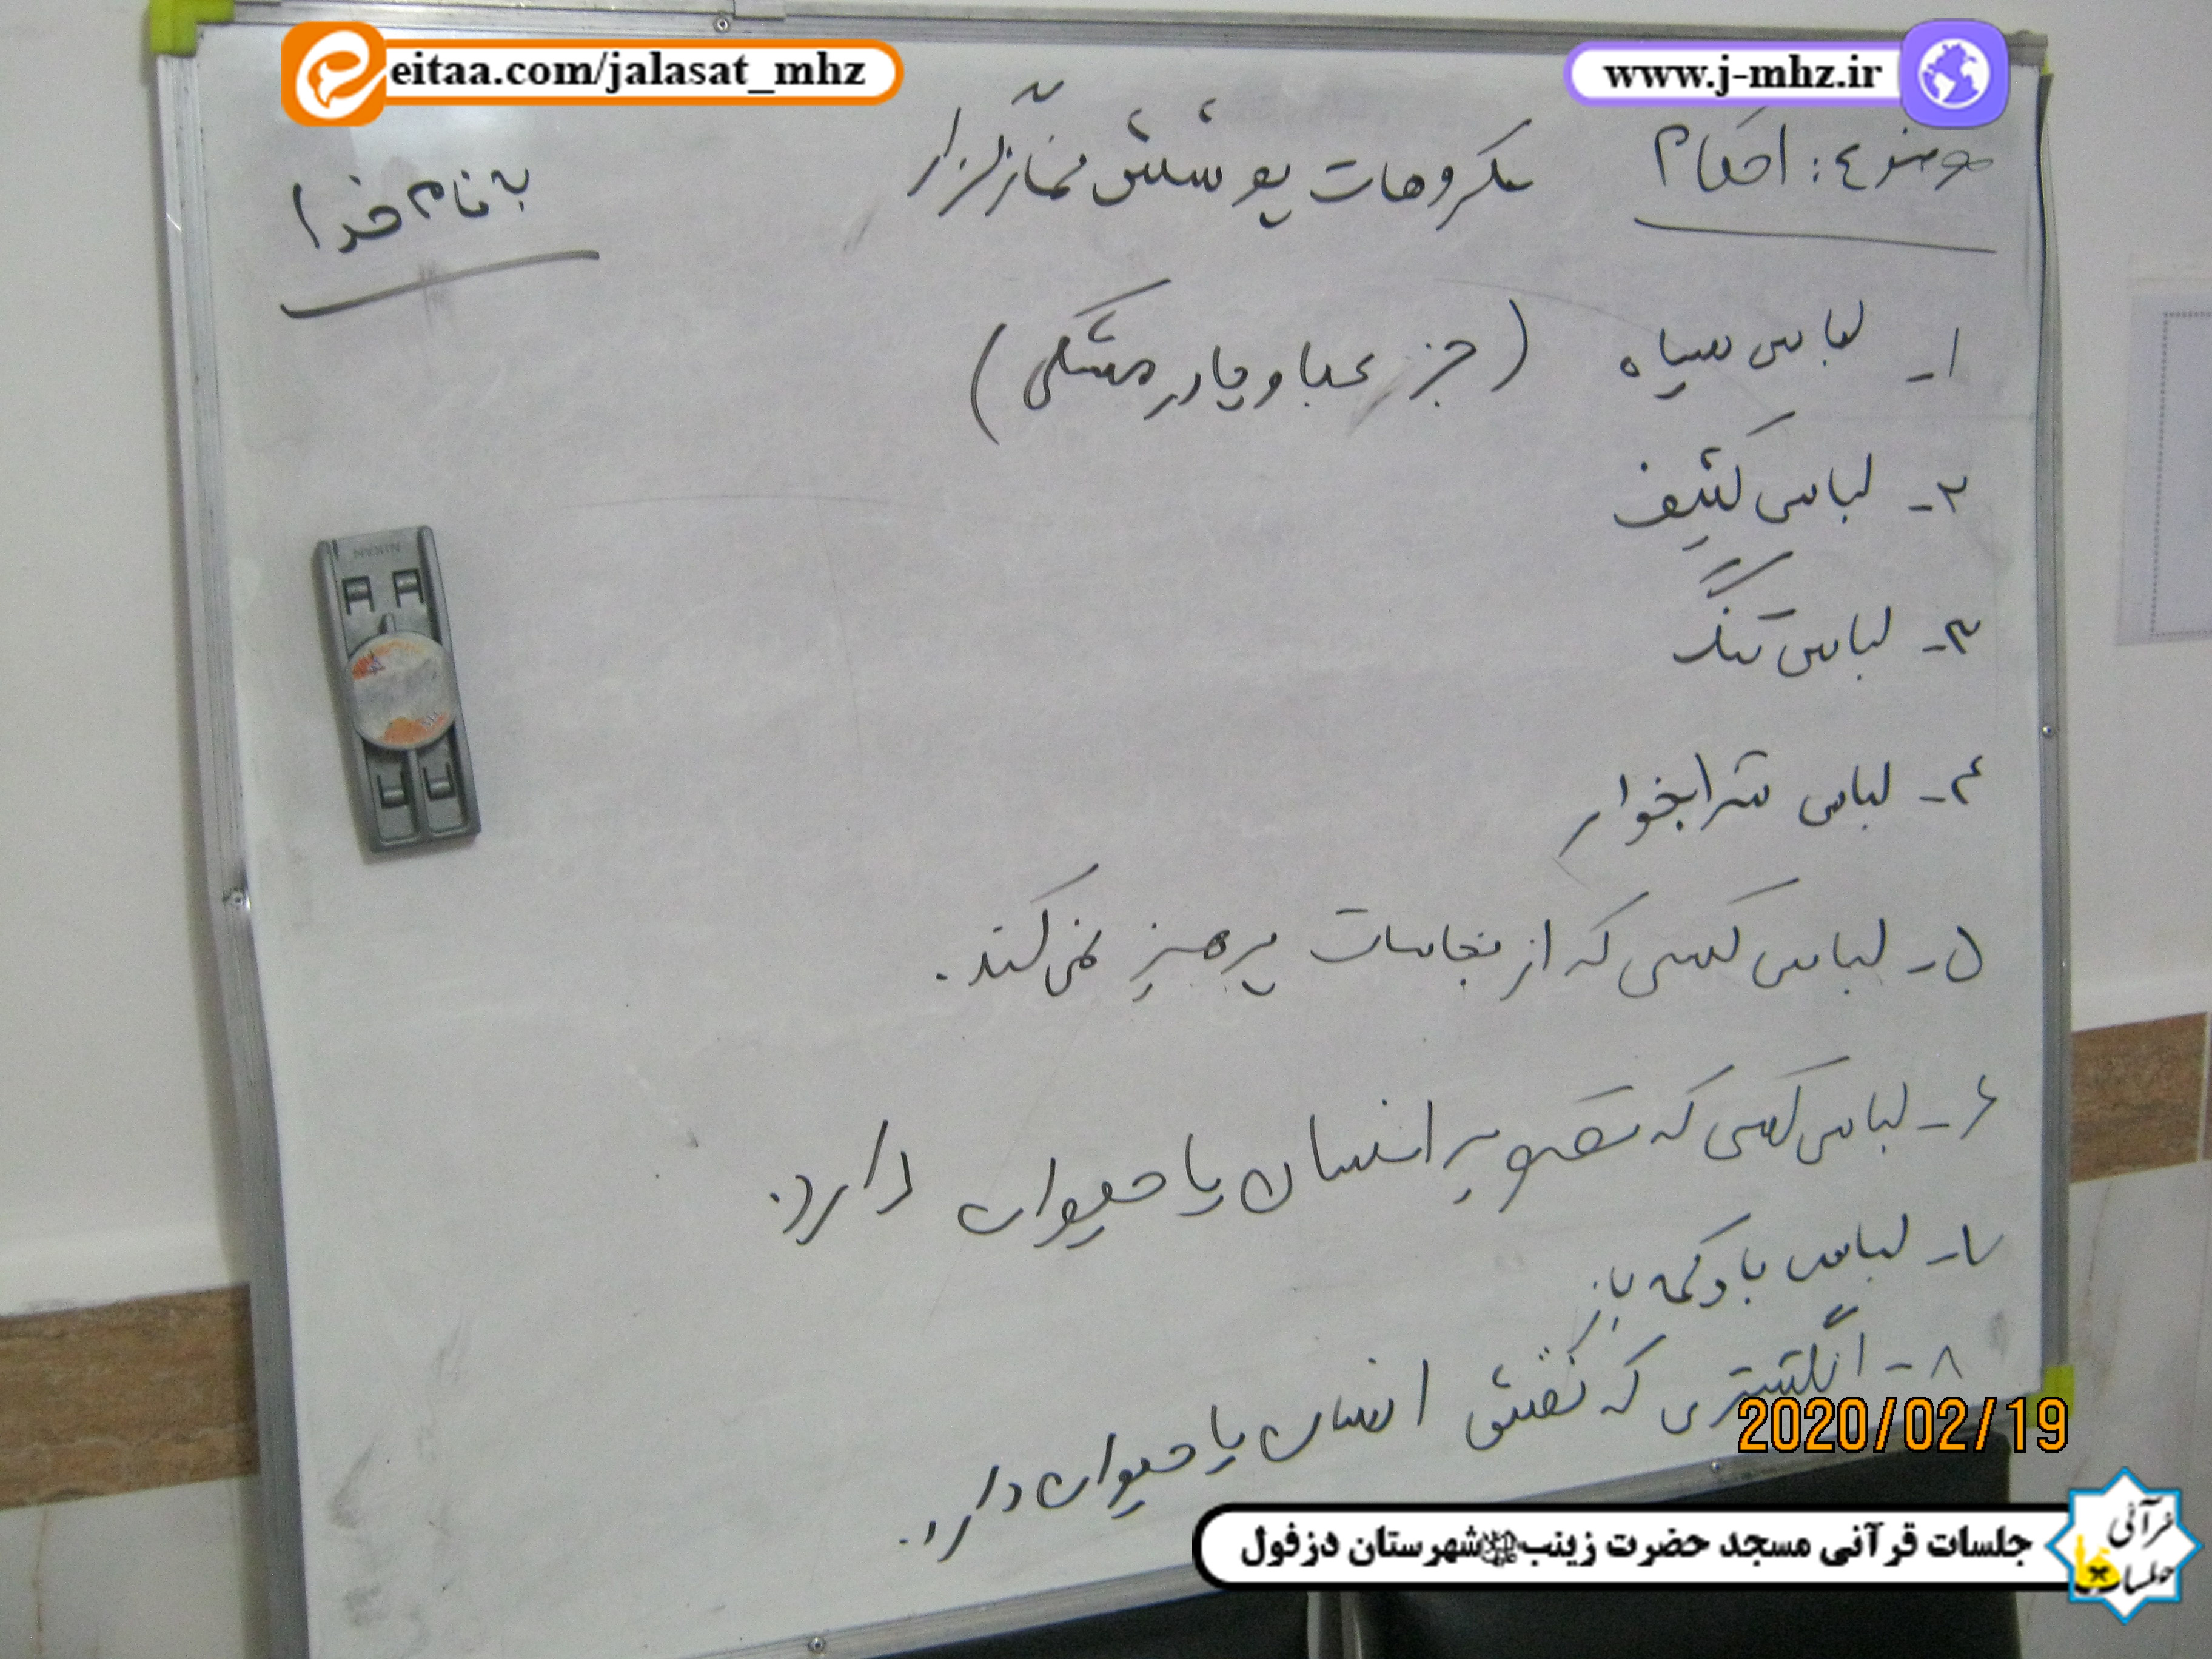 eitaa.com/jalasat_mhz
www.j-mhz.ir
به نام خدا
موضوع: احکام مکروهات پوشش نمازگزار
۱- لباس سیاه (جز عبا و چادر مشکی)
۲- لباس کثیف
۳- لباس تنگ
۴- لباس شرابخوار
۵- لباس کسی که از نجاسات پرهیز نمی‌کند.
۶- لباس کسی که تصویر انسان یا حیوان دارد.
۷- لباس با دکمه باز
۸- انگشتری که نقش انسان یا حیوان دارد.
2020/02/19
جلسات قرآنی مسجد حضرت زینب شهرستان دزفول
جلسات قرآنی
NIKAN